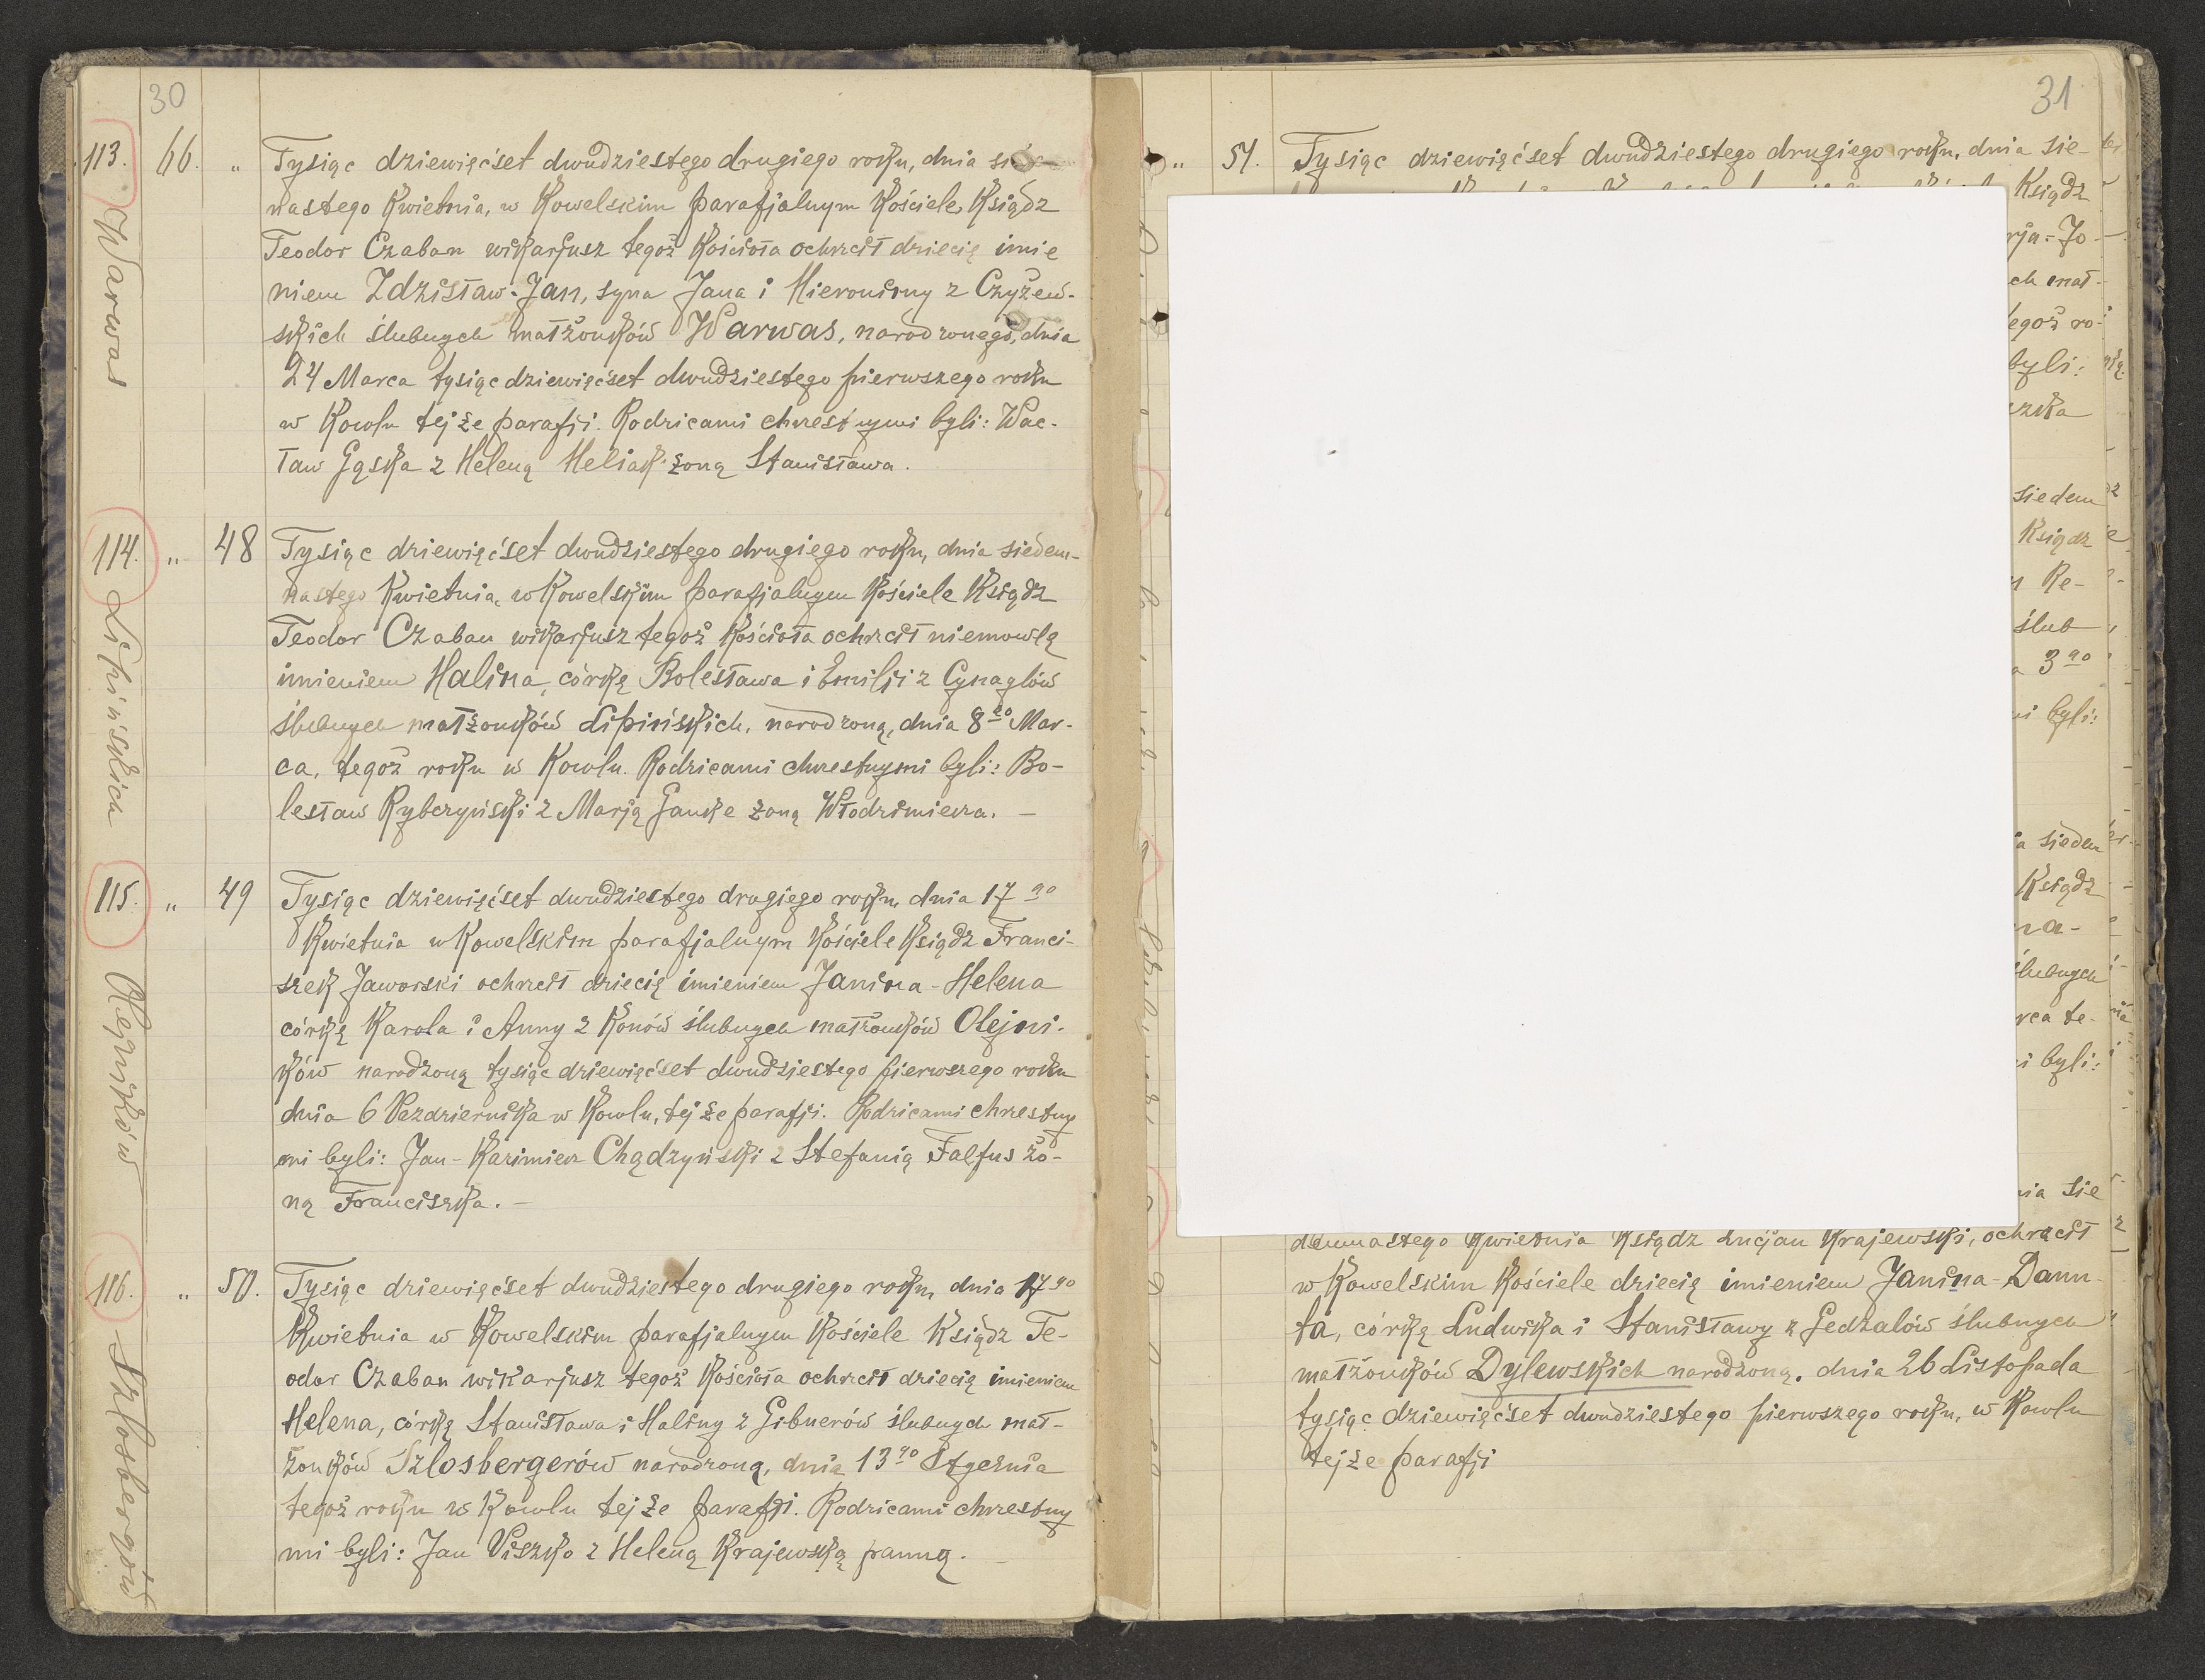 30
113. 66. " Tysiąc dziewięćset dwudziestego drugiego roku, dnia
nastego Kwietnia, w Kowelskim parafjalnym Kościele, Ksiądz
Teodor Czaban wikarjusz tegoż Kościoła ochrzcił dziecię imie
niem Zdzisław-Jan, syna Jana i Hieronimy z Czyżew-
skich ślubnych małżonków Warwas, narodzonego, dnia
24 Marca tysiąc dziewięćset dwudziestego pierwszego roku
w Kowlu tejże parafji. Rodzicami chrzestnymi byli: Wac-
ław Gąska z Heleną Heliak żoną Stanisława.
Warwas
114. " 48 Tysiąc dziewięćset dwudziestego drugiego roku, dnia siedem-
nastego Kwietnia, w Kowelskim parafjalnym Kościele Ksiądz
Teodor Czaban wikarjusz tegoż Kościoła ochrzcił niemowlą
imieniem Halina, córkę Bolesława i Emilji z Cynaglów
ślubnych małżonków Lipińskich, narodzoną, dnia 8go Mar-
ca, tegoż roku w Kowlu. Rodzicami chrzestnymi byli: Bo-
lesław Rybczyński z Marją Ganke żoną Włodzimierza. —
Lipińskich
115. " 49 Tysiąc dziewięćset dwudziestego drugiego roku, dnia 17go
Kwietnia w Kowelskim parafjalnym Kościele Ksiądz Franci-
szek Jaworski ochrzcił dziecię imieniem Janina-Helena
córkę Karola i Anny z Konów ślubnych małżonków Olejni-
ków narodzoną tysiąc dziewięćset dwudziestego pierwszego roku
dnia 6 Pezdziernika w Kowlu, tejże parafji. Rodzicami chrzestny
mi byli: Jan-Kazimierz Chądzyński z Stefanią Falfus żo-
ną Franciszka. —
Olejników
116. " 50. Tysiąc dziewięćset dwudziestego drugiego roku, dnia 17go
Kwietnia w Kowelskim parafjalnym Kościele Ksiądz Te-
odor Czaban wikarjusz tegoż Kościoła ochrzcił dziecię imieniem
Helena, córkę Stanisława i Haliny z Gibnerów ślubnych mał-
żonków Szlosbergerów narodzoną, dnia 13go Stycznia
tegoż roku w Kowlu tejże parafji. Rodzicami chrzestny
mi byli: Jan Piszko z Heleną Krajewską panną. —
Szlosbergerów
31
" 51. Tysiąc dziewięćset dwudziestego drugiego roku, dnia sie-
Ksiądz
rja-Jo-
ch mał-
tegoż ro-
byli:
szka
siedem
Ksiądz
Re-
ślub
3go
byli:
siedem
Ksiądz
na-
ślubnych
rca te-
byli:
nia sie
demnastego Kwietnia Ksiądz Lucjan Krajewski, ochrzcił
w Kowelskim Kościele dziecię imieniem Janina-Danu-
ta, córkę Ludwika i Stanisławy z Gedzalów ślubnych
małżonków Dylewskich narodzoną. dnia 26 Listopada
tysiąc dziewięćset dwudziestego pierwszego roku, w Kowlu
tejże parafji